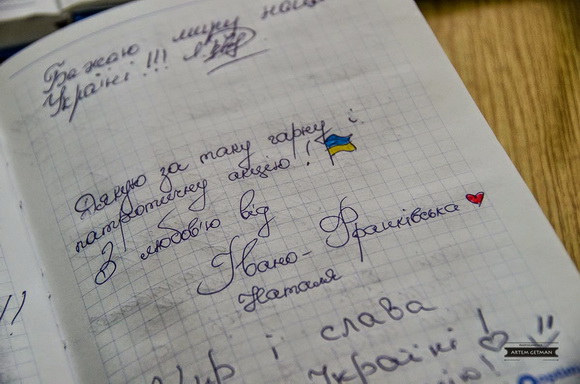 Бажаю миру нашій
Україні!!!
Дякую за таку гарну і
патріотичну акцію!
З любов'ю від
Івано-Франківська
Наталя
Мир і слава
Україні!
ARTEM GETMAN